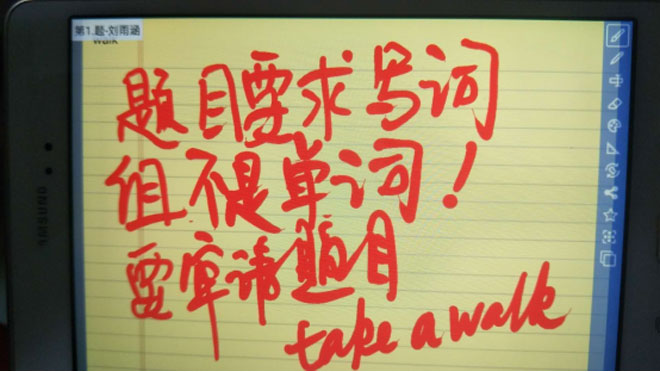 第1.题-刘雨涵
walk
题目要求写词
组不是单词！
要审请题目
take a walk
SAMSUNG